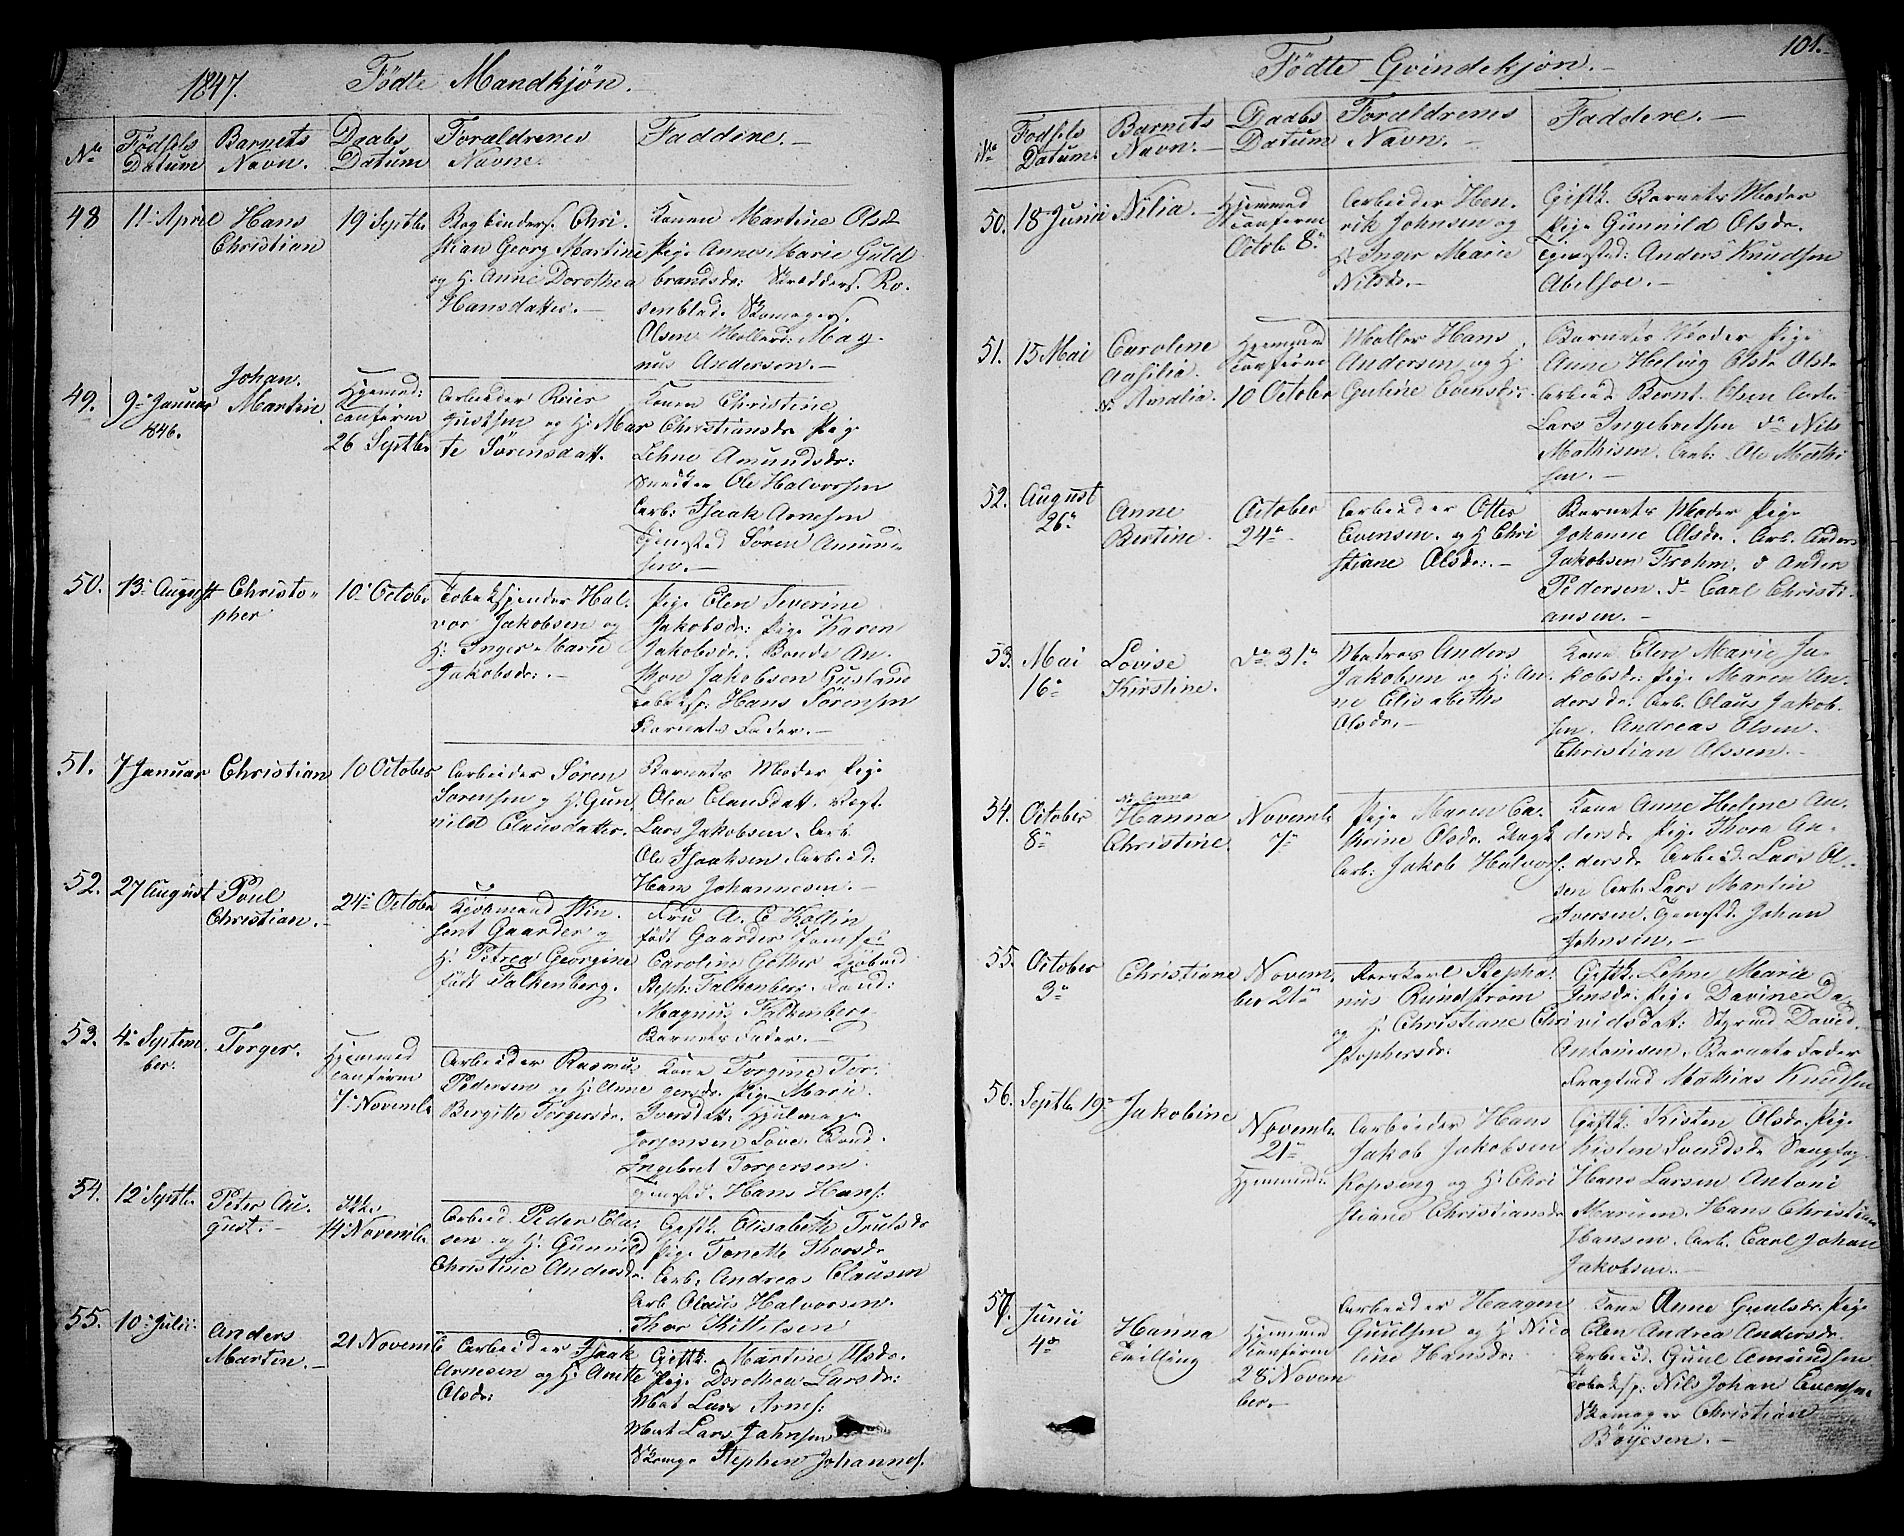 1847. Födte Mandkjøn.
No Födsels Datum Barnets Navn. Daabs Datum Foraldrenes Navne. Faddere.
48 11 April Hans Christian 19 Septbr
Bogbinders. Chri-
stian Georg Martini
og H. Anne Dorothea
Hansdatter.
Konen Martine Olsd.
Pige Anne Marie Guld
brandsdr: Skredders. Ro-
senblad. Skomagers.
Olsen Mag-
nus Andersen.
49. 9 Januar 1846. Johan Martin Hjemmed: Confirm 26 Septbr
Arbeider Reier
og H: Mar
te Sörensdatt.
Konen Christine
Christiansdr Pige
Lehne Amundsdr:
Ole Halvorsen
Arb: Isaak Arnesen
Tjenestd Sören Amund-
sen.
50. 13 August Christo-
pher 10 October
Hal-
vor Jakobsen og
H: Inger Marie
Jakobsdr:
Pige Elen Severine
Jakobsdr: Pige Karen
Jakobsdr. Bonde An-
thon Jakobsen
Hans Sörensen
Barnets Fader.
51. 7 Januar Christian 10 October
Arbeider Sören
Sörensen og H: Gun
nild Clausdatter.
Barnets Moder Pige
Olea Clausdatt.
Lars Jakobsen. Arb
Ole Isaaksen. Arbeid:
Hans Johannesen.
52. 27 August Poul
Christian. 24 October
Kjöbmand Win-
sent Gaarder og
H: Petrea Georgine
födt Falkenberg.
Fru A. C. Kollin
födt Gaarder Jomf.
Caroline
Falkenberg.
Magnus Falkenberg
Barnets Fader.
53. 4 Septem
ber. Torger. Hjemmed Confirm 7 Novembr
Arbeider Rasmus
Pedersen og H: Anne
Bergitte Torgersdr.
Kone Torgine Tor-
gersdr. Pige Marie
Iversdatt.
Jörgensen Löve.
Ingebret Torgersen.
Tjenestd. Hans Hans:
54. 12 Septbr Peter Au-
gust. 14 Novembr
Arbeid. Peder Cla-
sen og H: Gunild
Christine Andersdr.
Gift K. Elisabeth Trulsdr
Pige Tonette Thorsdr
Arb. Andreas Clausen
Arb Olaus Halvorsen.
Thor Kittelsen
55. 10 Julii Anders
Martin. 21 Novembr
Arbeider Isaak
Arnesen og H: Anette
Olsdr:
Gift K. Martine Olsdr.
Pige Dorothea Larsdr:
Mat Lars Arnes:
Mat Lars Jahnsen
Skomag Stephen Johannes.
101.
Födte Qvindekjön.
No Fodsels Datum. Barnets Navn. Daabs Datum Foraldrenes Navn. Faddere.
50. 18 Junii Nilia. Hjemmed Confirm Octob 8
Arbeider Hen-
rik Johnsen og
H: Inger Marie
Nilsdr.
Gift K. Barnets Moder
Pige Gunnild Olsdr.
Tjenestd: Anders Knudsen
Abelsoe.
51. 15 Mai Caroline
Amalia. Hjemmed Confirm 10 October
Möller Hans
Andersen og H:
Guline Evensdr:
Barnets Moder Pige
Anne Helvig Olsdr
Arbeid Bernt Olsen Arb:
Lars Ingebretsen do Nils
Mathisen. Arb: Ole Mathi
sen.
52. August 26 Anne
Bertine. October 24
Arbeider Otter
Evensen. og H: Chri
stiane Olsdr:
Barnets Moder Pige
Johanne Olsdr. Arb. Anders
Jakobsen Frohm. do Anders
Pedersen. do Carl Christi-
ansen.
53. Mai 16 Lovise
Kirstine. do 31
Matros Anders
Jakobsen og H: An-
ne Elisabeth
Olsdr.
Kone Elen Marie Ja-
kobsdr: Pige Maren An-
dersdr. Arb. Olaus Jakob-
sen. Andreas Olsen.
Christian Olssen.
54. October 8 No Anna
Hanna
Christine. Novembr 7
Pige Maren Ca-
thrine Olsdr. Ungk
Arb: Jakob Halvors:
Kone Anne Helene An-
dersdr Pige Thora An-
dersdr Arbeid. Lars Ol-
sen Arb. Lars Martin
Iversen. Johan
Johnsen.
55. October 3 Christiane Novem-
ber 21
Stepha-
nus Rundström
og H: Christiane Chri
stophersdr:
Gift K: Lehne Marie
Jensdr: Pige Davine Da-
vidsdatt: Styrmd David
Antonisen. Barnets Fader
Fragtmd Mathias Knudsen
56. Septbr 19 Jakobine Novembr 21 Hjemmed:
Arbeider Hans
Jakob Jakobsen
og H: Chri
stiane Christiansdr
Gift K: Kisten Olsdr. Pige
Kisten Svendsdr
Hans Larsen Antoni
Hans Christian
Hansen. Arb. Carl Johan
Jakobsen.
57. Junii 4 Hanna
Tvilling Hjemmed Confirm 28 Novem
ber.
Arbeider Haagen
Guulsen og H: Nico
line Hansdr:
Kone Anne Guulsdr. Pige
Elen Andrea Andersdr.
Arbeid. Guul Amundsen
Nils Johan Evensen
Skomager Christian
Böyesen.